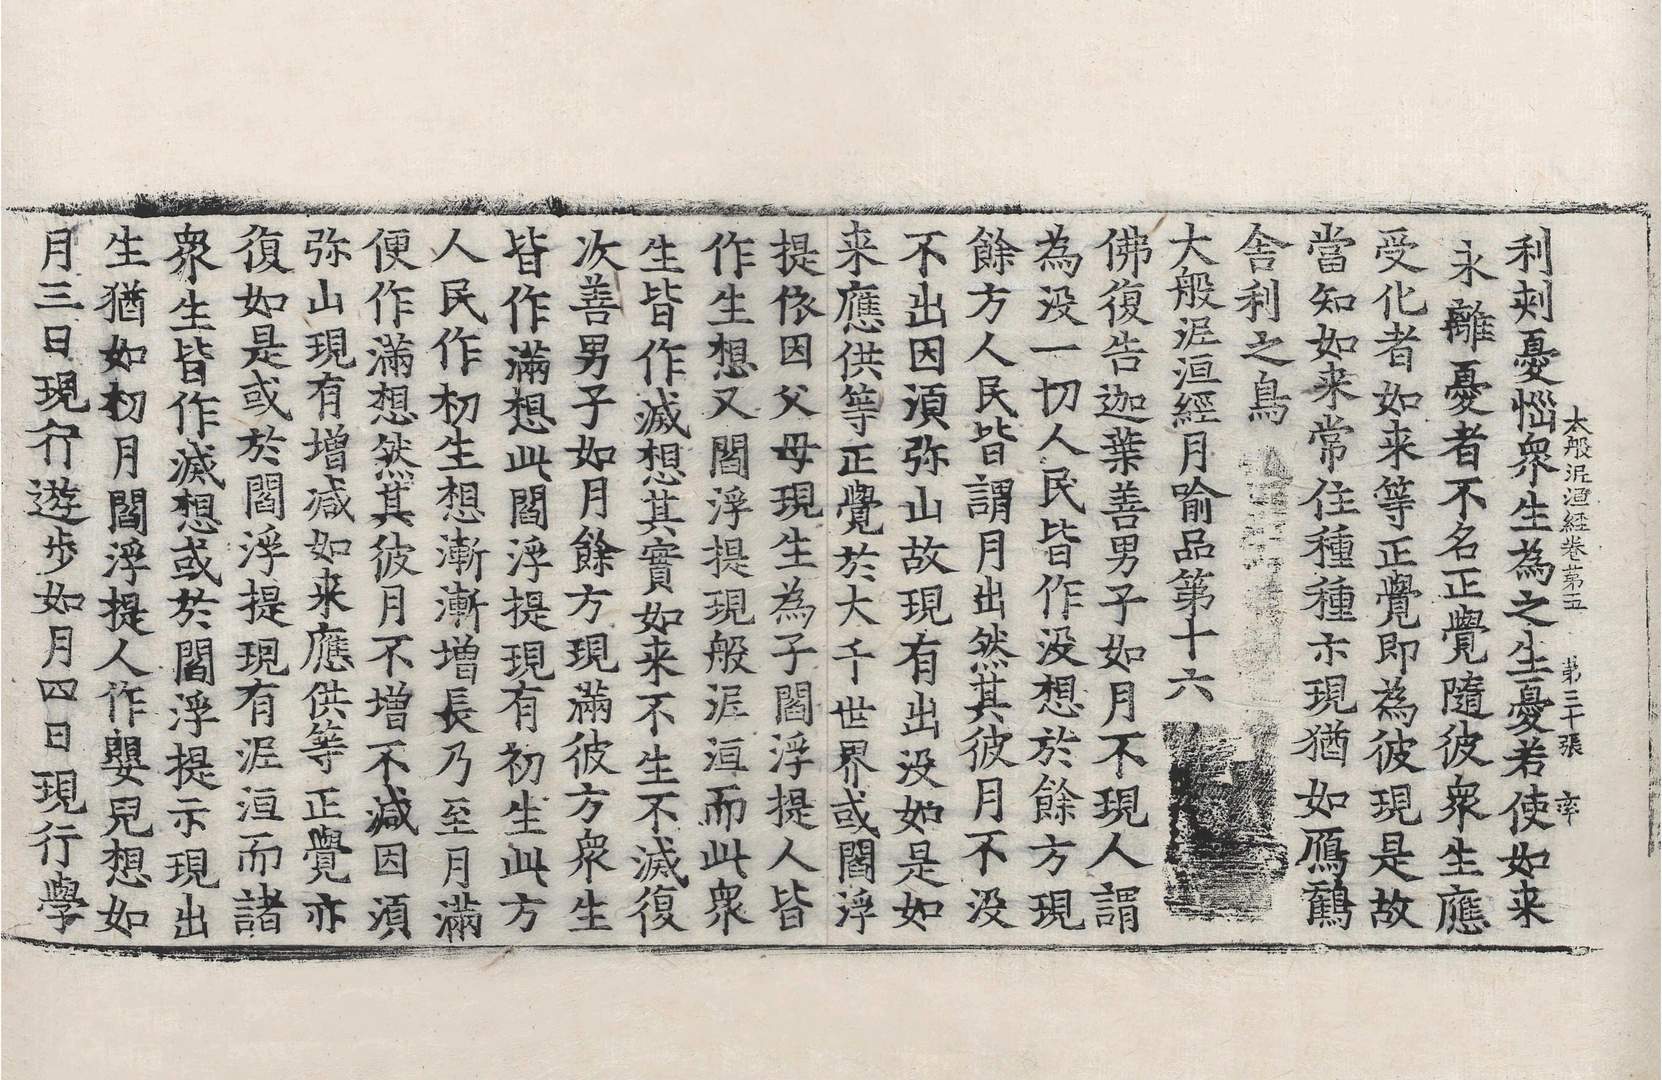 大般泥洹經卷第五 第三十張 率
利刹憂惱衆生為之生憂若使如来
永離憂者不名正覺隨彼衆生應
受化者如来等正覺即為彼現是故
當知如来常住種種示現猶如鴈鶴
舎利之鳥
大般泥洹經月喻品第十六
佛復告迦葉善男子如月不現人謂
為没一切人民皆作没想於餘方現
餘方人民皆謂月出然其彼月不没
不出因湏弥山故現有出没如是如
来應供等正覺於大千世界或閻浮
提依因父母現生為子閻浮提人皆
作生想又閻浮提現般泥洹而此衆
生皆作滅想其實如来不生不滅復
次善男子如月餘方現滿彼方衆生
皆作滿想此閻浮提現有初生此方
人民作初生想漸漸增長乃至月滿
便作滿想然其彼月不增不減因湏
弥山現有增减如来應供等正覺亦
復如是或於閻浮提現有泥洹而諸
衆生皆作滅想或於閻浮提示現出
生猶如初月閻浮提人作嬰兒想如
月三日現行遊步如月四日現行學